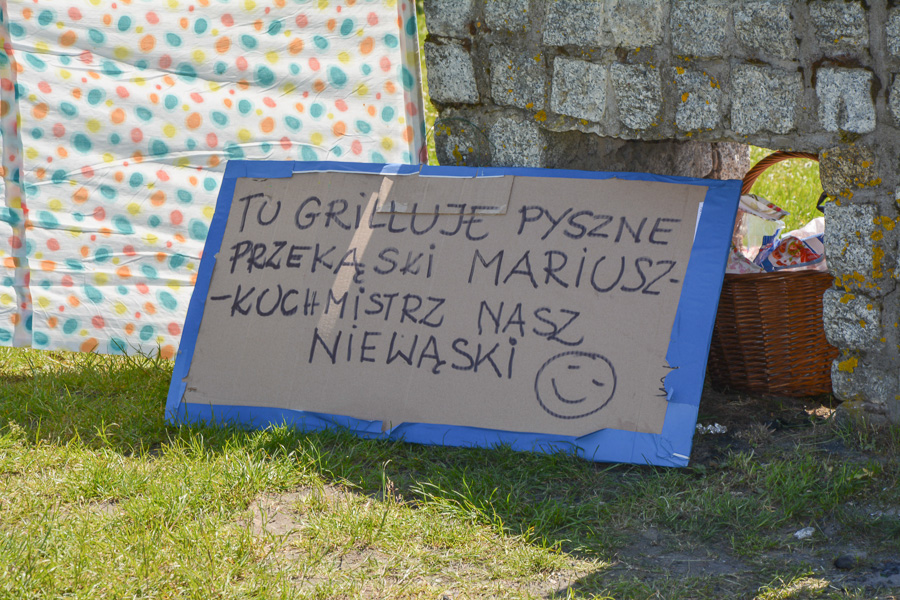 TU GRILLUJE PYSZNE
PRZEKĄSKI MARIUSZ-
-KUCHMISTRZ NASZ
NIEWĄSKI